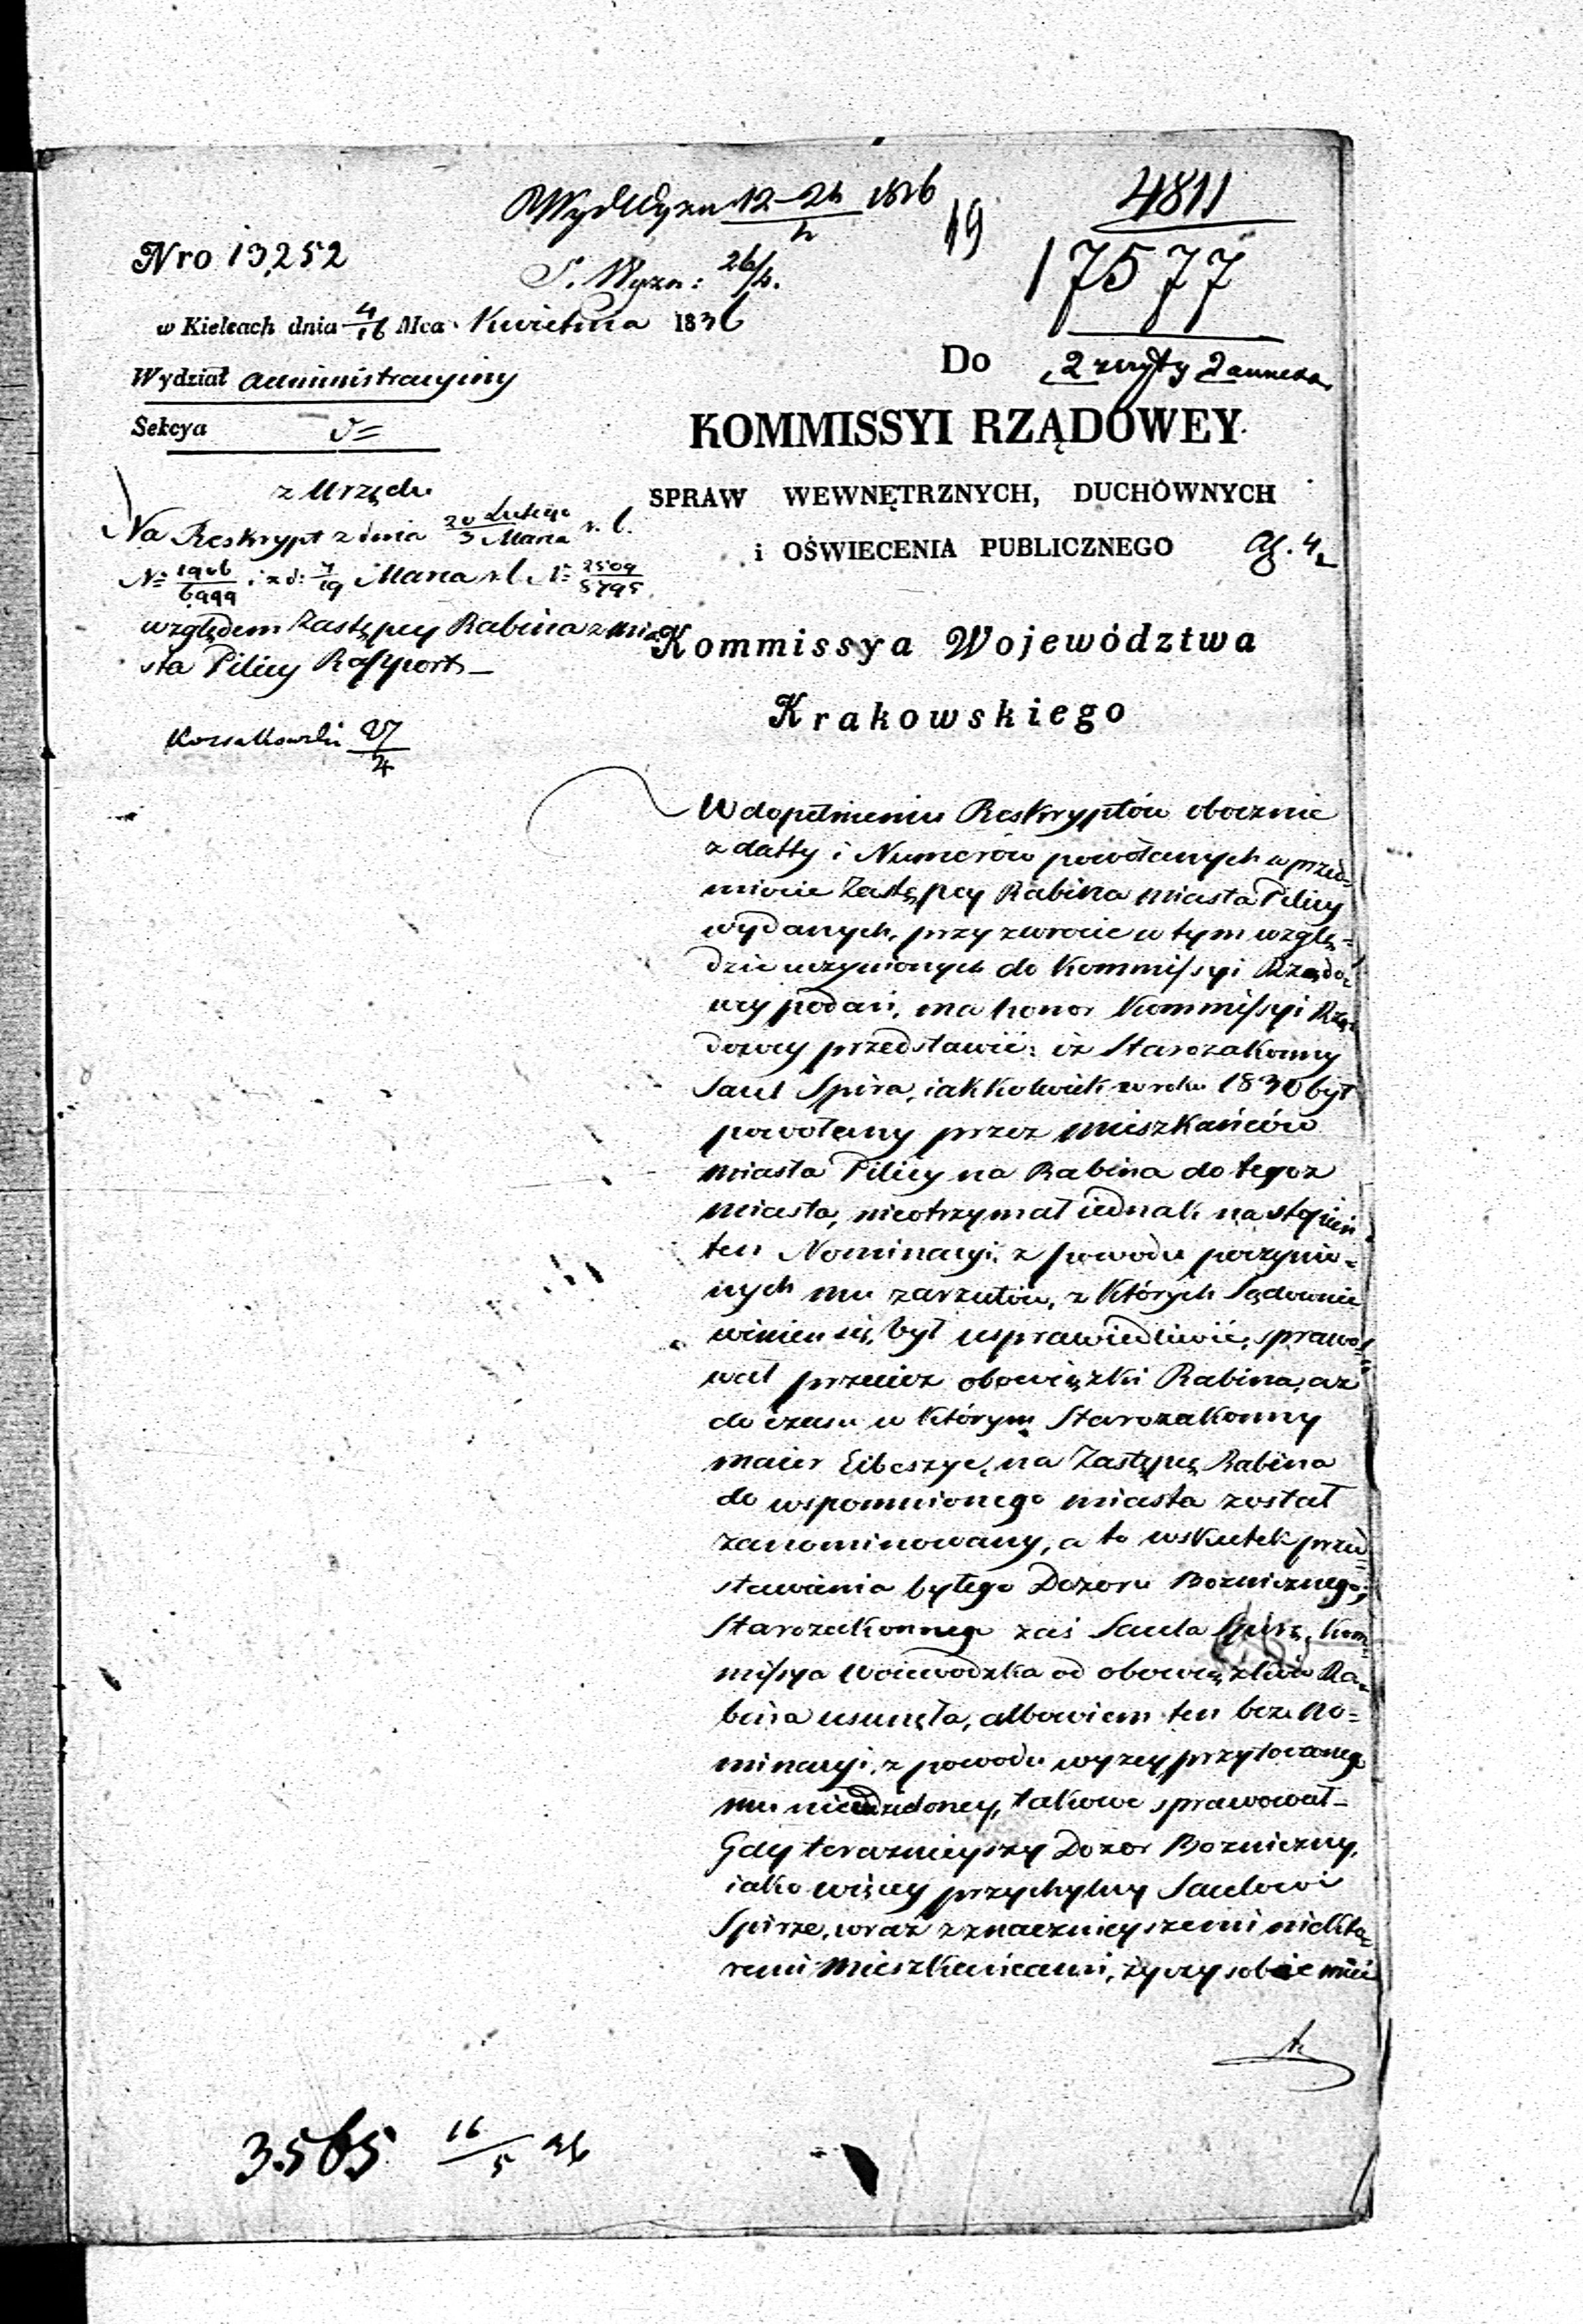 12-24/4 1836
4811
19
17577
Nro 13,252
S. Wyzn: 26/4.
w Kielcach dnia 4/16 Mca Kwietnia 1836
Do
2 zeszyty
Wydział Administracyiny
KOMMISSYI RZĄDOWEY
Sekcya
SPRAW WEWNĘTRZNYCH, DUCHÓWNYCH
i OŚWIECENIA PUBLICZNEGO
z Urzędu
Na Reskrypt z dnia 20 Lutego/3 Marca r. b.
No 1906/6999 i z d: 7/19 Marca r. b. No 2509/8795
względem Zastępcy Rabina z mia
sta Pilicy Rapport
27/4
Kommissya Województwa
Krakowskiego
W dopełnieniu Reskryptów obocznie
z datty i Numerów powołanych w przed=
miocie Zastępcy Rabina miasta Pilicy
wydanych, przy zwrocie w tym wzglę=
dzie uczynionych do Kommissyi Rządo=
wey podań, ma honor Kommissyi Rzą=
dowey przedstawić: iż Starozakonny
Saul Spira, iakkolwiek w roku 1830 był
powołany przez mieszkańców
miasta Pilicy na Rabina do tegoż
miasta, nieotrzymał iednak na stopień
ten Nominacyi, z powodu poczynio=
nych mu zarzutów, z których Sądownie
winien się był usprawiedliwić, sprawo=
wał przecież obowiązki Rabina, aż
do czasu w którym Starozakonny
Maier Eibeszyc, na Zastępcę Rabina
do wspomnionego miasta został
zanominowany, a to wskutek przed=
stawienia byłego Dozoru Bożnicznego;
Starozakonnego zaś Saula Spirę, Kom=
missya Woiewodzka od obowiązków Ra=
bina usunęła, albowiem ten bez No=
minacyi, z powodu wyżey przytoczonego
mu nieudzieloney, takowe sprawował_
Gdy teraznieyszy Dozor Bożniczny,
iako więcey przychylny Saulowi
Spirze, wraz z znacznieyszemi niektó=
remi Mieszkańcami, życzy sobie mieć
3565 16/5 36